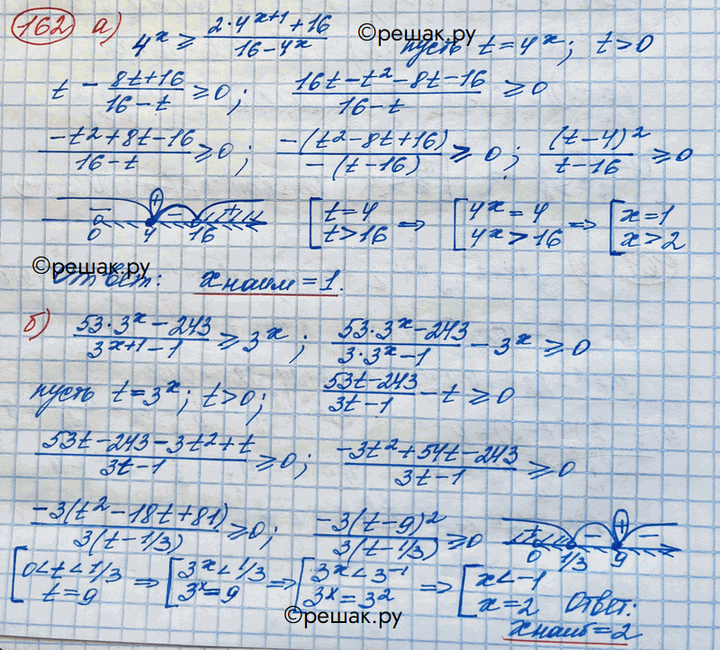 162 а) 4^x ≥ (2·4^(x+1) + 16)/(16 − 4^x) ©решак.ру пусть t = 4^x; t > 0
t − (8t+16)/(16−t) ≥ 0; (16t − t² − 8t − 16)/(16 − t) ≥ 0
(−t² + 8t − 16)/(16 − t) ≥ 0; (−(t² − 8t + 16))/(−(t − 16)) ≥ 0; (t−4)²/(t−16) ≥ 0
− + − + 0 4 16 [t = 4 t > 16 ⇒ [4^x = 4 4^x > 16 ⇒ [x = 1 x > 2
©решак.ру
Ответ: x наим = 1.
б) (53·3^x − 243)/(3^(x+1) − 1) ≥ 3^x; (53·3^x − 243)/(3·3^x − 1) − 3^x ≥ 0
пусть t = 3^x; t > 0; (53t − 243)/(3t − 1) − t ≥ 0
(53t − 243 − 3t² + t)/(3t − 1) ≥ 0; (−3t² + 54t − 243)/(3t − 1) ≥ 0
(−3(t² − 18t + 81))/(3(t − 1/3)) ≥ 0; (−3(t−9)²)/(3(t − 1/3)) ≥ 0 + − + − 0 1/3 9
[0 < t < 1/3 t = 9 ⇒ [3^x < 1/3 3^x = 9 ⇒ [3^x < 3^(−1) 3^x = 3² ⇒ [x < −1 x = 2 Ответ:
©решак.ру
x наиб = 2